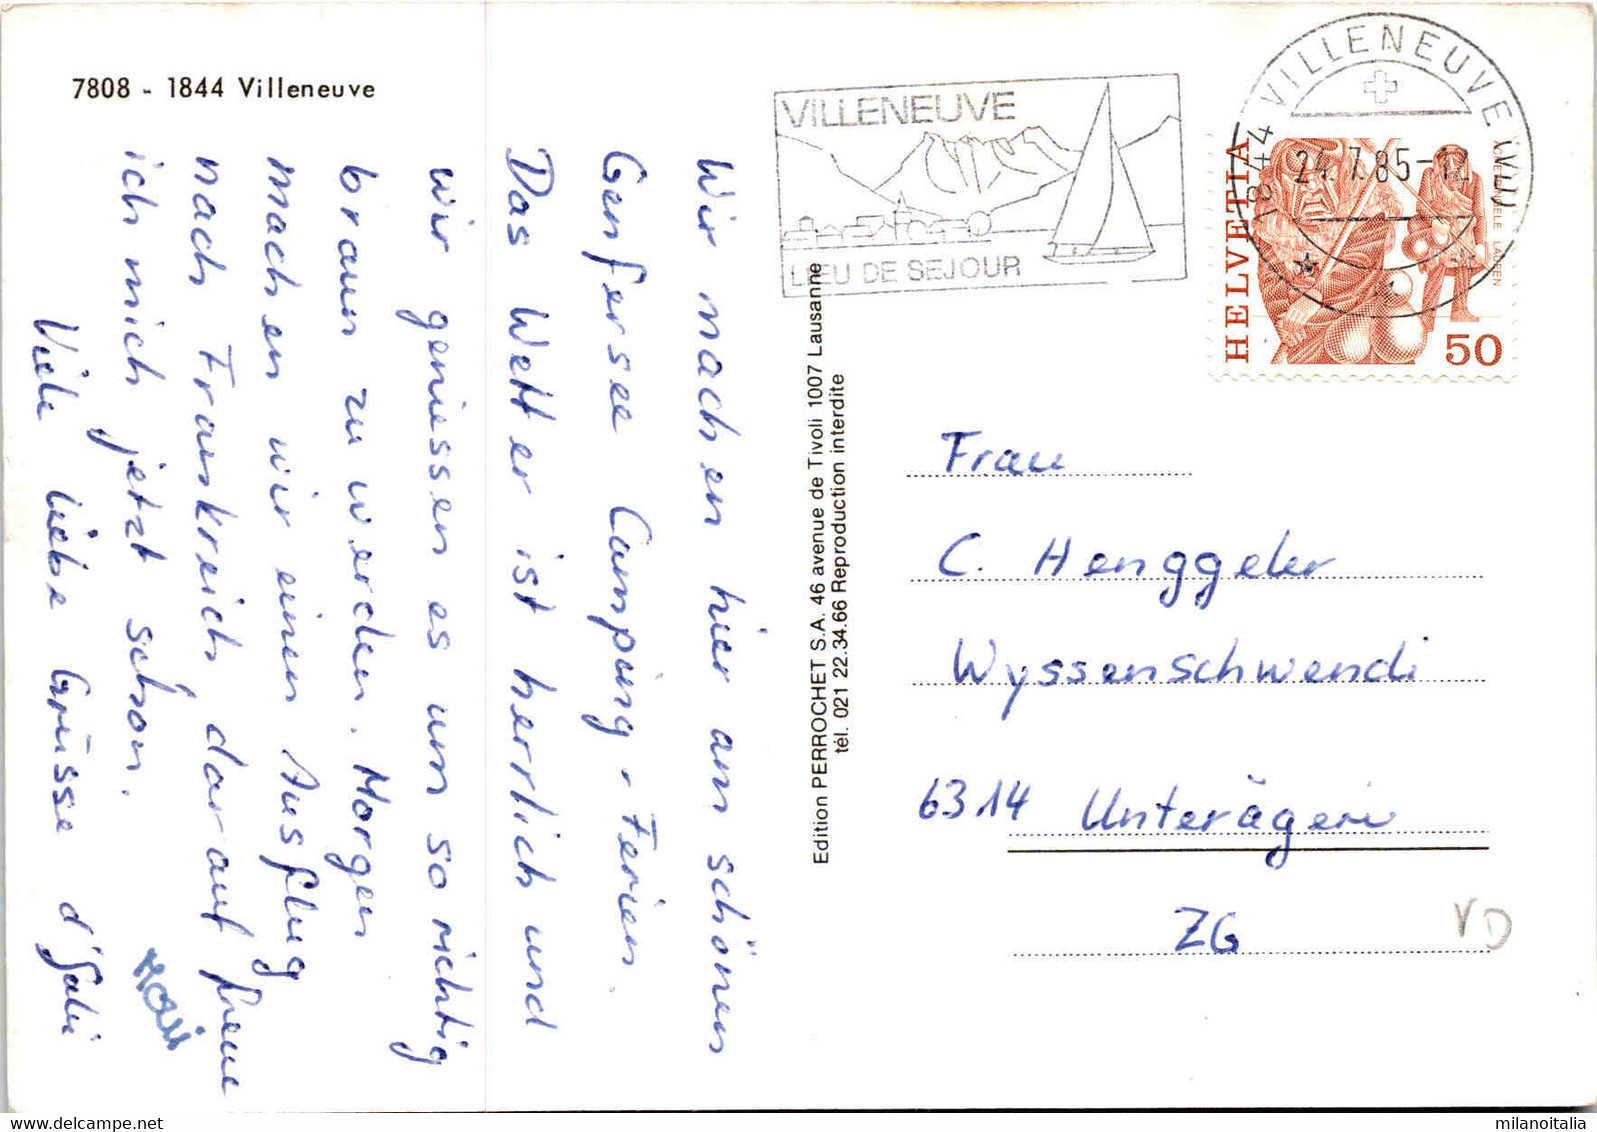 7808 - 1844 Villeneuve
Wir machen hier am schönen
Genfersee Camping-Ferien.
Das Wetter ist herrlich und
wir geniessen es um so richtig
braun zu werden. Morgen
machen wir einen Ausflug
nach Frankreich darauf freue
ich mich jetzt schon.
Viele liebe Grüsse d'Gabi
Edition PERROCHET S.A. 46 avenue de Tivoli 1007 Lausanne
tél. 021 22.34.66 Reproduction interdite
VILLENEUVE
LIEU DE SEJOUR
1844 VILLENEUVE VD
24.7.85-12
HELVETIA
LAUFEN
50
Frau
C. Henggeler
Wyssenschwendi
6314 Unterägeri
ZG
VD
milanoitalia